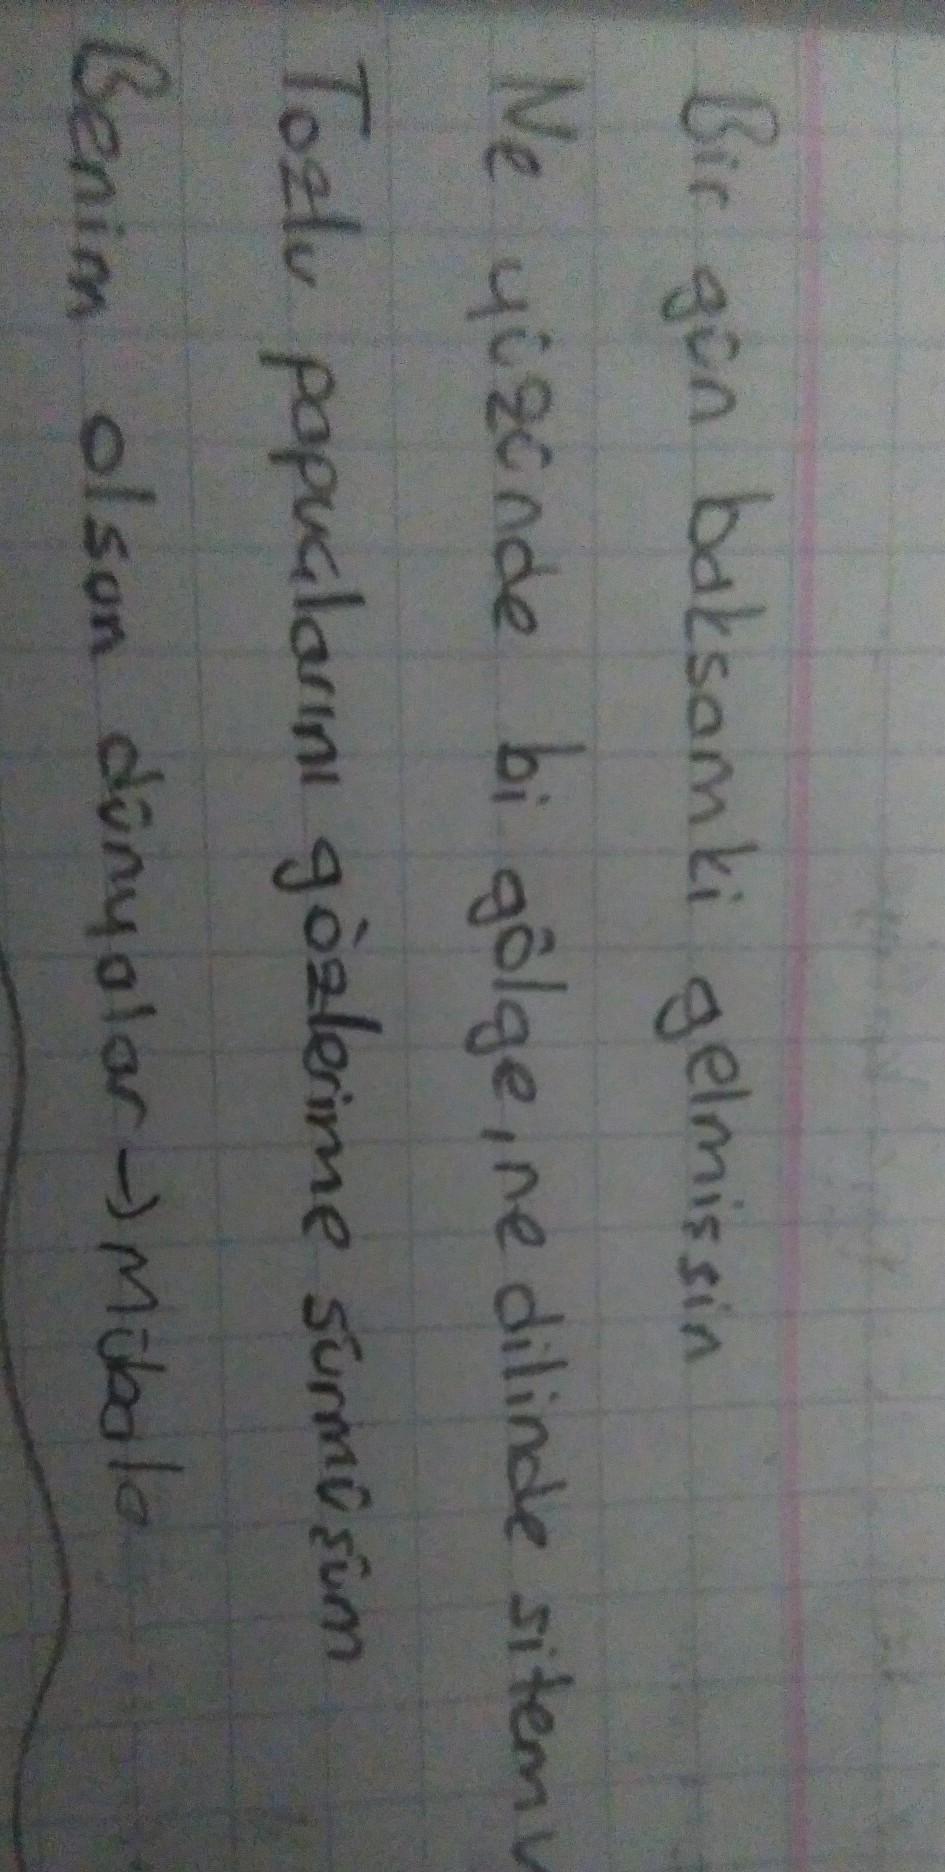 Bir gün baksamki gelmişsin
Ne yüzünde bi gölge, ne dilinde sitem v
Tozlu papuçlarını gözlerime sürmüşüm
Benim olsan dünyalar → Mübala